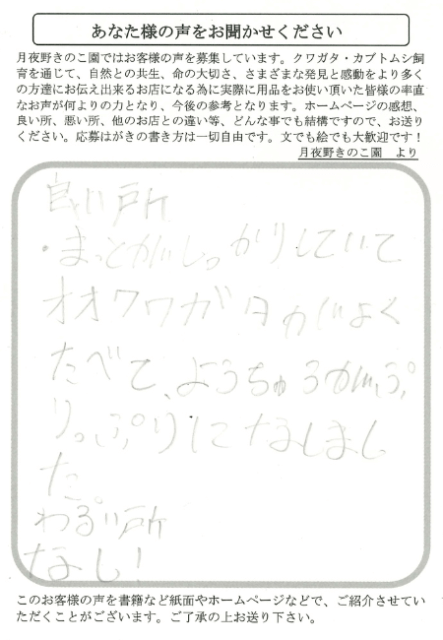 あなた様の声をお聞かせください
月夜野きのこ園ではお客様の声を募集しています。クワガタ・カブトムシ飼
育を通じて、自然との共生、命の大切さ、さまざまな発見と感動をより多く
の方達にお伝え出来るお店になる為に実際に用品をお使い頂いた皆様の率直
なお声が何よりの力となり、今後の参考となります。ホームページの感想、
良い所、悪い所、他のお店との違い等、どんな事でも結構ですので、お送り
ください。応募はがきの書き方は一切自由です。文でも絵でも大歓迎です！
月夜野きのこ園　より
良い所
・まっとがしっかりしていて
オオクワガタがよく
たべて、ようちゅうがぷ
りっぷりになしまし
た。
わるい所
なし!
このお客様の声を書籍など紙面やホームページなどで、ご紹介させてい
ただくことがございます。ご了承の上お送り下さい。